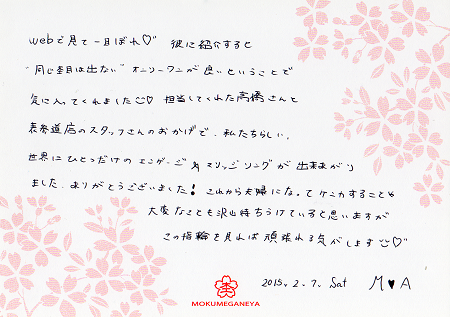 webで見て一目ぼれ♡ 彼に紹介すると
"同じ杢目は出ない" オンリーワンが良いということで
気に入ってくれました☺♡ 担当してくれた高橋さんと
表参道店のスタッフさんのおかげで、私たちらしい、
世界にひとつだけのエンゲージ&マリッジリングが出来あがり
ました。ありがとうございました! これから夫婦になってケンカすることや
大変なことも沢山待ちうけていると思いますが
この指輪を見れば頑張れる気がします☺♡
2015. 2. 7. Sat M♥A
杢
MOKUMEGANEYA